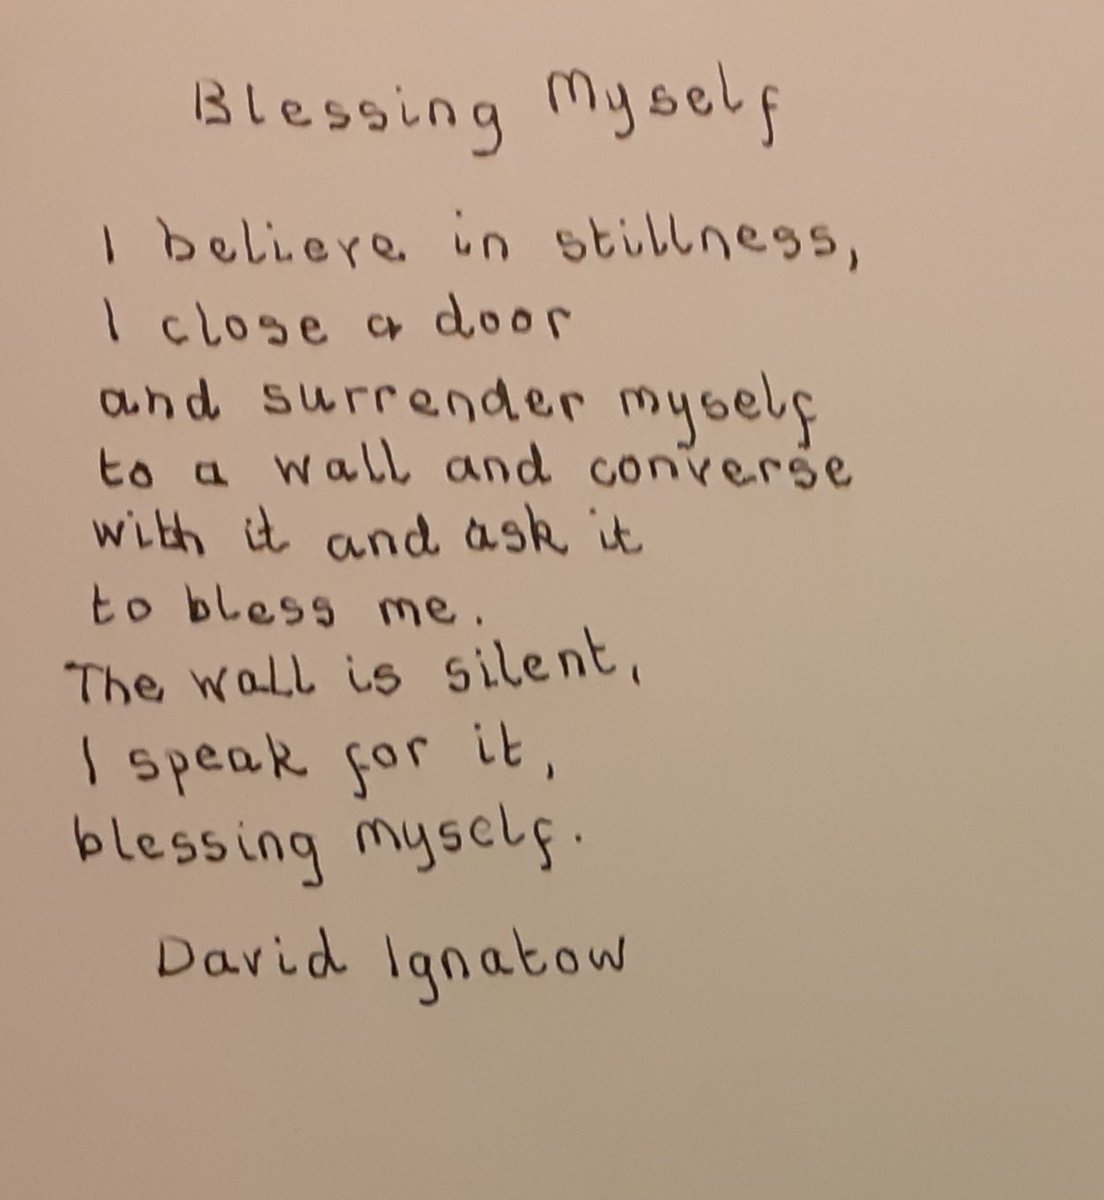 Blessing Myself
I believe in stillness,
I close a door
and surrender myself
to a wall and converse
with it and ask it
to bless me.
The wall is silent,
I speak for it,
blessing myself.
David Ignatow